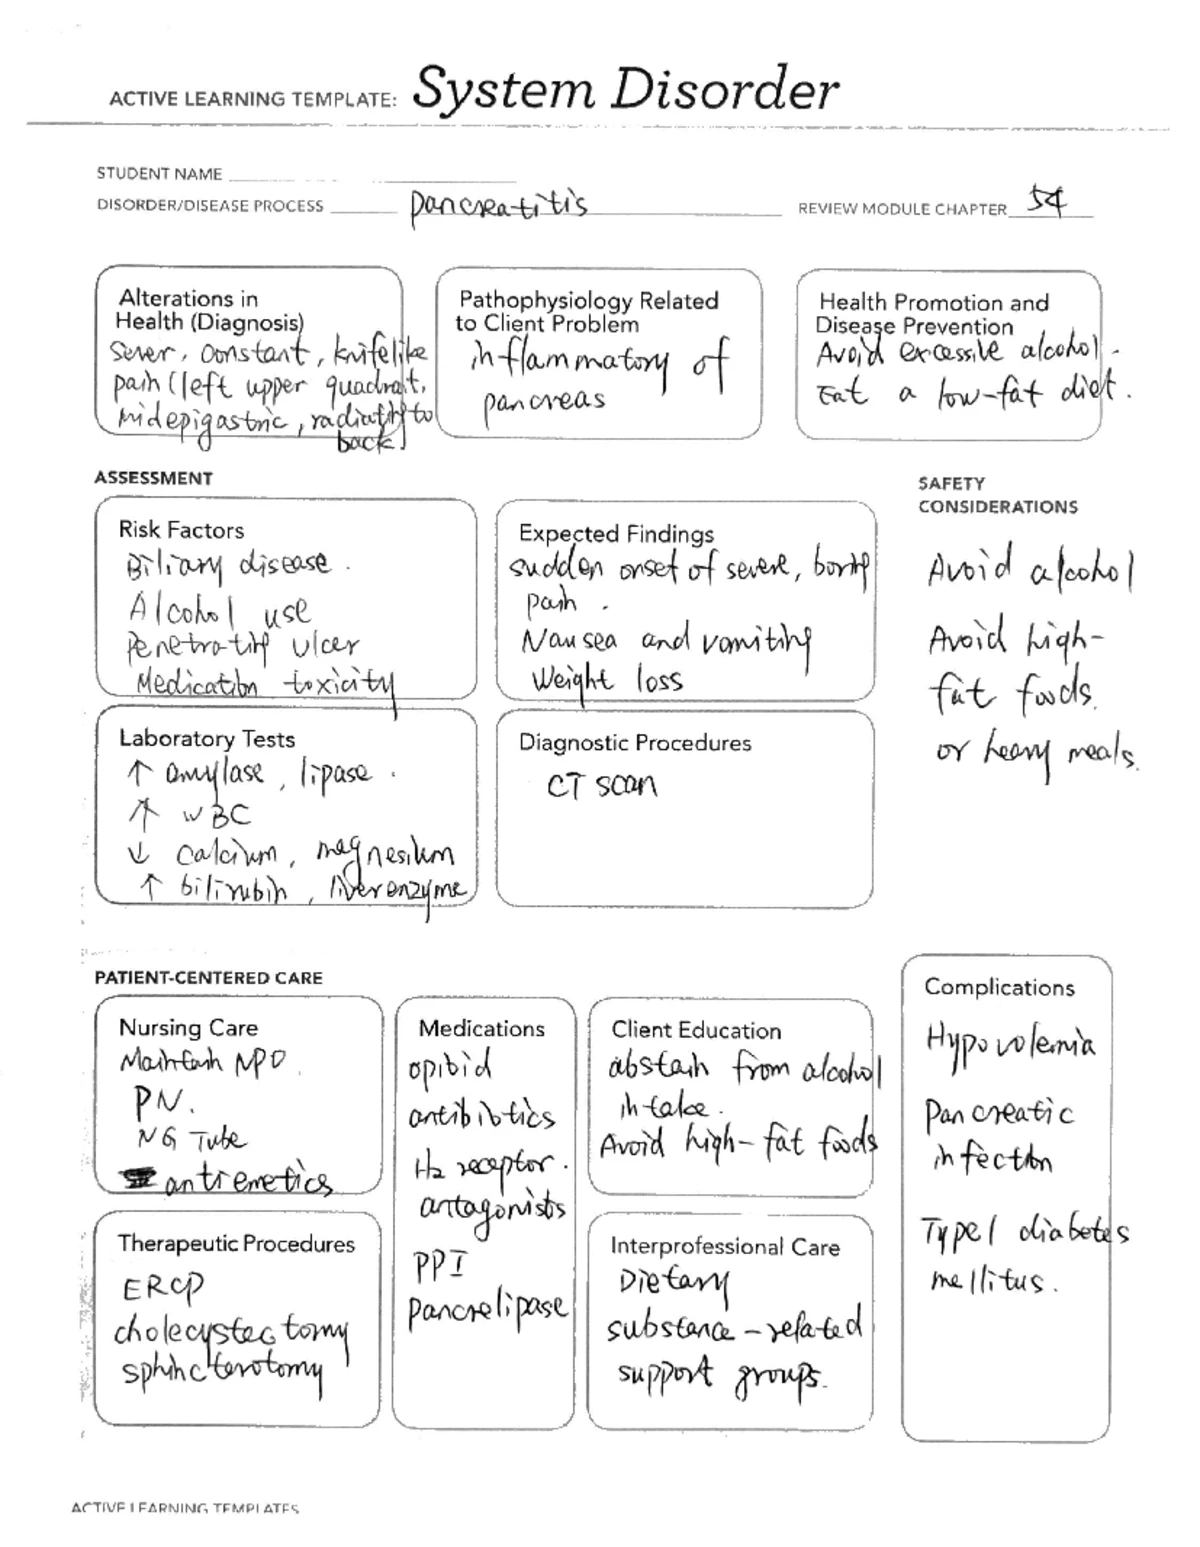 ACTIVE LEARNING TEMPLATE: System Disorder
STUDENT NAME
DISORDER/DISEASE PROCESS pancreatitis
REVIEW MODULE CHAPTER 54
Alterations in
Health (Diagnosis)
Sever, constant, knifelike
pain (left upper quadrat,
midepigastric, radiating to
back)
Pathophysiology Related
to Client Problem
inflammatory of
pancreas
Health Promotion and
Disease Prevention
Avoid excessive alcohol.
Eat a low-fat diet.
ASSESSMENT
SAFETY
CONSIDERATIONS
Risk Factors
Biliary disease.
Alcohol use
Penetrating ulcer
Medication toxicity
Expected Findings
sudden onset of severe, boring
pain.
Nausea and vomiting
Weight loss
Avoid alcohol
Avoid high-
fat foods.
or heavy meals.
Laboratory Tests
↑ amylase, lipase.
↑ WBC
↓ calcium, magnesium
↑ bilirubin, liver enzyme
Diagnostic Procedures
CT scan
PATIENT-CENTERED CARE
Nursing Care
Maintain NPO.
PN.
NG Tube
antiemetics
Medications
opioid
antibiotics
H2 receptor.
antagonists
PPI
pancrelipase
Client Education
abstain from alcohol
intake.
Avoid high-fat foods
Complications
Hypovolemia
Pancreatic
infection
Type 1 diabetes
mellitus.
Therapeutic Procedures
ERCP
cholecystectomy
sphincterotomy
Interprofessional Care
Dietary
substance-related
support groups.
ACTIVE LEARNING TEMPLATES